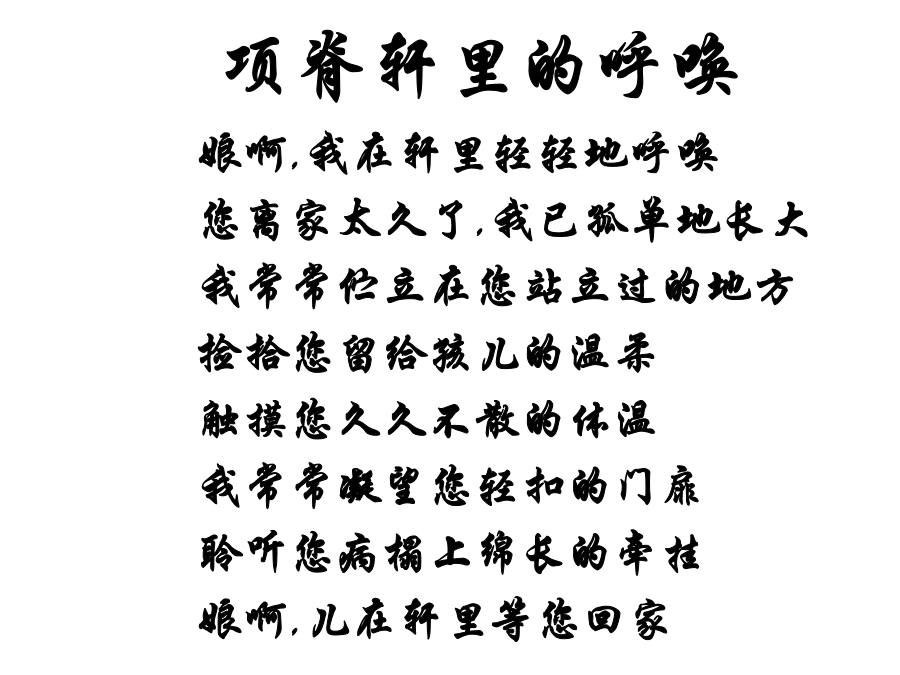 项脊轩里的呼唤
娘啊,我在轩里轻轻地呼唤
您离家太久了,我已孤单地长大
我常常伫立在您站立过的地方
捡拾您留给孩儿的温柔
触摸您久久不散的体温
我常常凝望您轻扣的门扉
聆听您病榻上绵长的牵挂
娘啊,儿在轩里等您回家